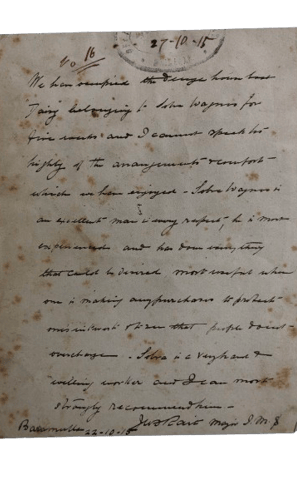 No 16
27-10-15
We have occupied the Dunga house boat
Fairy belonging to Sobra Wagnoo for
five weeks and I cannot speak too
highly of the arrangements & comfort
which we have enjoyed - Sobra Wagnoo is
an excellent man in every respect, he is most
and has done everything
that could be desired most useful when
one is making any purchases to protect
one's interests & to see that people do not
overcharge. Sobra is a very hard &
willing worker and I can most
strongly recommend him -
Major I.M.S
Baramulla 22-10-15